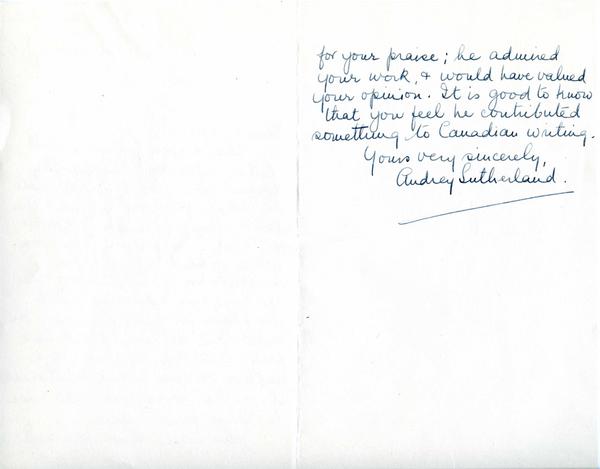 for your praise; he admired
your work, & would have valued
your opinion. It is good to know
that you feel he contributed
something to Canadian writing.
Yours very sincerely,
Audrey Sutherland.